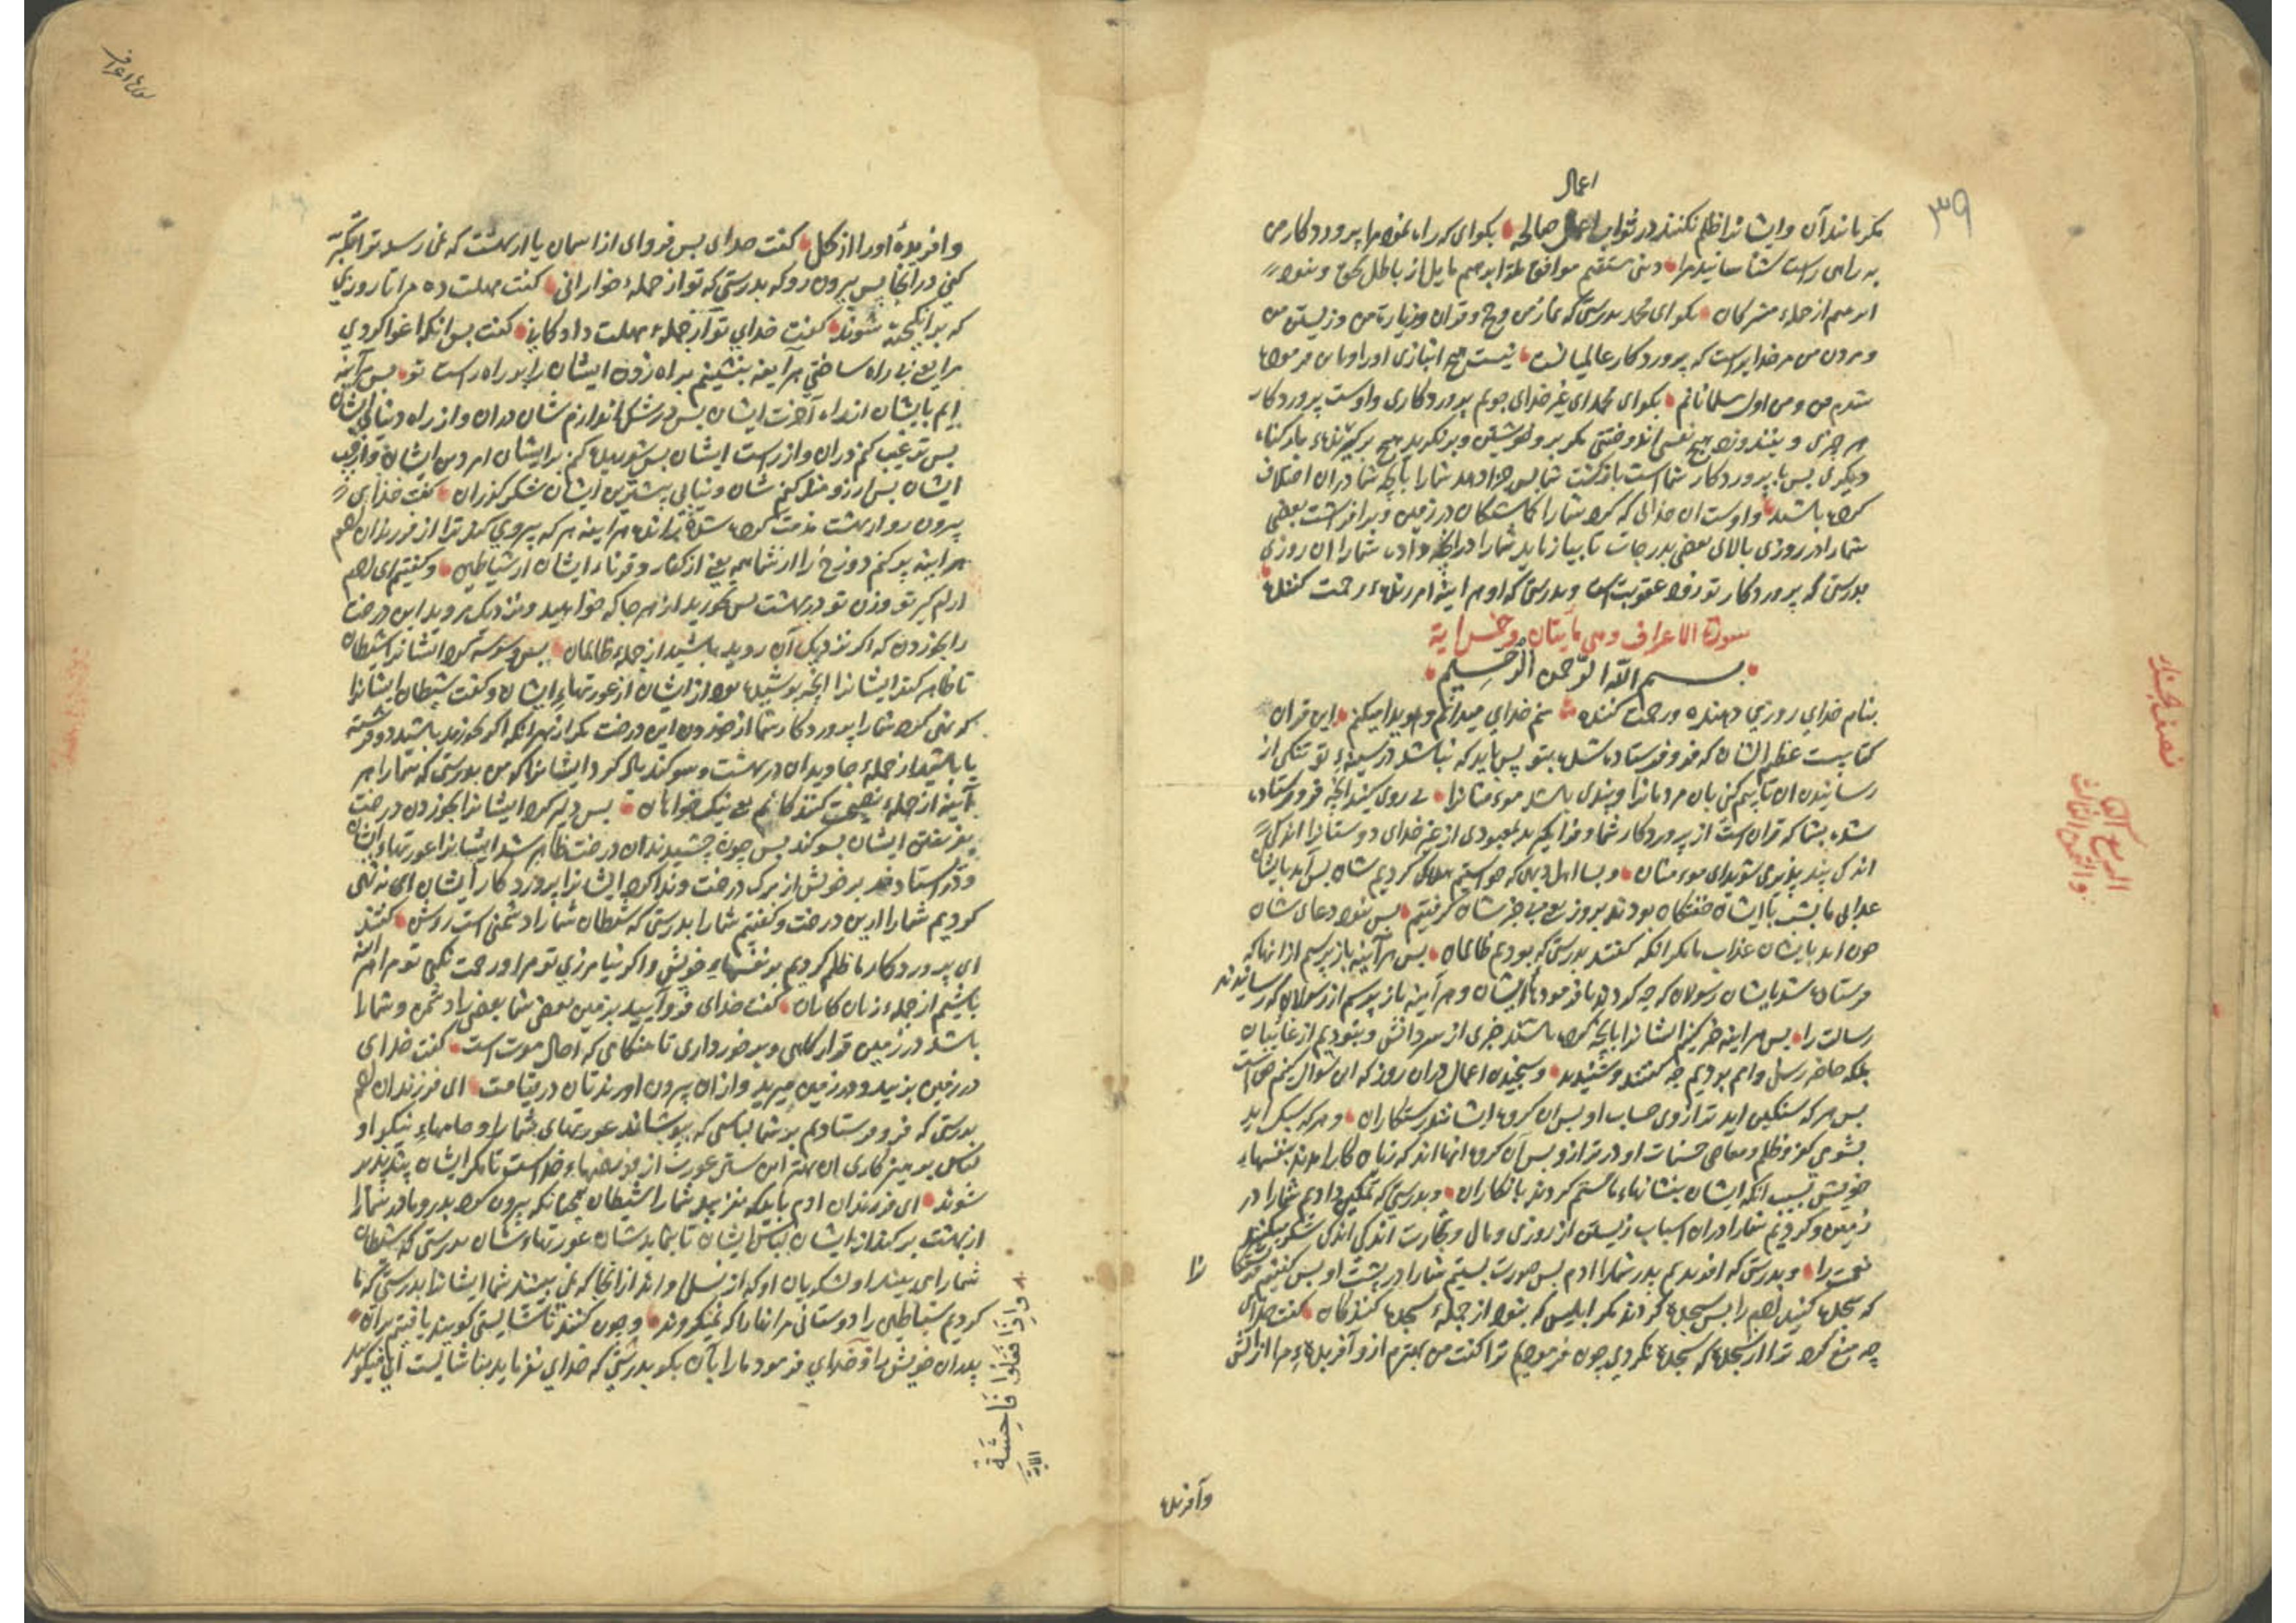 ۳۹
اعمال
مکر مانند آن و ایشانرا ظلم نکنند در ثواب اعمال صالحه بکوای که راه نمود مرا پروردکار من
به راهی راست شناسانید مرا دینی مستقیم موافق ملة ابرهیم مایل از باطل بحق و نبود
ابرهیم از جملهء مشرکان بکو ای محمد بدرستی که نماز من و حج و قربان و زیارت من و زیستن من
و مردن من مر خدایراست که پروردکار عالمیانست نیست هیچ انبازی او را و باین فرموده
شدم من و من اول مسلمانانم بکو ای محمد ای غیر خدای جویم پروردکاری و اوست پروردکار
هر چیزی و نیندوزد هیچ نفسی اندوختنی مکر بر خویشتن و بر نکیرد هیچ بر کیرندهء بار کناه
دیکری پس با پروردکار شماست بازکشت شما پس خبر دهد شما را بآنچه شما در آن اختلاف
کرده باشید و اوست آن خدائی که کرد شما را کماشتکان در زمین و برافراشت بعضی
شما را در روزی بالای بعضی بدرجات تا بیازماید شما را در آنچه داد شما را آن روزی
بدرستی که پروردکار تو زود عقوبت است و بدرستی که او هر اینه امرزندهء رحمت کننده
سورة الاعراف وهی مأیتان وخمس ایة
بسم الله الرحمن الرحیم
بنام خدای روزی دهنده و رحمت کننده منم خدای میدانم و هویدا میکنم این قران
کتابیست عظیم الشان که فرو فرستاده شد بتو پس باید که نباشد در سینهء تو تنکی از
رسانیدن آن تا بیم کنی بان مردمانرا و پندی باشد مومنانرا پی روی کنید آنچه فرو فرستاده
شد بشما که قران است از پروردکار شما و فرا مکیرید بمعبودی از غیر خدای دوستانرا اندکی
اندکی پند پذیری شوید ای مومنان و بسا اهل دیهی که خواستیم هلاکی کردیم شان پس آمد بایشان
عذاب ما بشب یا ایشان خفتکان بودند بروز یعنی بی خبر شان کرفتیم پس نبود دعای شان
چون آمد بایشان عذاب ما مکر آنکه کفتند بدرستی که بودیم ظالمان پس هر آینه باز پرسیم از آنها که
فرستاده شد بایشان رسولان که چه کردند با فرمودهای ایشان و هر آینه باز پرسیم از رسولان که رسانیدند
رسالت را پس هر اینه خبر کنیم ایشانرا بآنچه کرده باشند خبری از سر دانش و نبودیم از غایبان
بلکه حاضر رسل و امم بودیم چه کفتند و شنیدند و سنجیدن اعمال در آن روز که آن سؤال کنیم حق است
پس هر که سنکین اید ترازوی حساب او پس آن کروه ایشانند رستکاران و هر که سبک اید
بشومی کفر و ظلم و معاصی حسنات او در ترازو پس آن کروه آنهااند که زیان کار آمدند بنفسهاء
خویش بسبب آنکه ایشان بنشانهاء ما ستم کردند بانکاران و بدرستی که تمکین دادیم شما را در
زمین و کردیم شما را در آن اسباب زیستن از روزی و مال و تجارت اندکی اندکی شکر میکنید
نعمت را و بدرستی که افریدیم پدر شما را ادم پس صورت بستیم شما را در پشت او پس کفتیم فرشتکا
نرا
که سجده کنید ادم را پس سجده کردند مکر ابلیس که نبود از جملهء سجده کنندکان کفت خدای
چه منع کرد ترا از سجده که سجده نکردی چون فرمودیم ترا کفت من بهترم از و آفریدهء مرا از آتش
وآفریده
نصف الحزب
سورة اعراف
و افریدهٔ او را از کل کفت خدای پس فرو آی از اسمان یا از بهشت که نمی رسد ترا تکبر
کنی در آنجا پس بیرون رو که بدرستی که تو از جملهء خوارانی کفت مهلت ده مرا تا روزی
که بر انکیخته شوند کفت خدای تو از جملهء مهلت دادکانی کفت پس بانکه اغوا کردی
مرا یعنی بی راه ساختی هر آینه بنشینم براه زدن ایشان را بر راه راست تو پس هر آینه
آیم بایشان از راه آخرت ایشان پس در شک اندازم شان در آن و از راه دنیای ایشان
پس ترغیب کنم در آن و از راست ایشان پس شوریده کنم بر ایشان امر دین ایشان و از چپ
ایشان پس ارزومند کنم شان و نیابی بیشترین ایشان شکرکزاران کفت خدای
بیرون رو از بهشت مذمت کرده شده رانده هر اینه هر که پیروی کند ترا از فرزندان ادم
هر اینه پر کنم دوزخ را از شما همه یعنی از کفار و قرناء ایشان از شیاطین و کفتیم ای ادم
ارام کیر تو و زن تو در بهشت پس بخورید از هر جا که خواهید و نزدیک مروید این درخت
را بخوردن که اکر نزدیک آن روید باشید از جملهء ظالمان پس وسوسه کرد ایشانرا شیطان
تا ظاهر کند ایشانرا آنچه پوشیده بود از ایشان از عورتهاء ایشان و کفت شیطان ایشانرا
که نهی نکرد شما را پروردکار شما از خوردن این درخت مکر از بهر آنکه اکر بخورید باشید دو فرشته
یا باشید از جملهء جاویدان در بهشت و سوکند یاد کرد ایشانرا که من بدرستی که شما را هر
آینه از جملهء نصیحت کنندکانم یعنی نیک خواهان پس دلیر کرد ایشانرا بخوردن درخت
بفریفتن ایشان بسوکند پس چون چشیدند آن درخت ظاهر شد ایشانرا عورتهاء ایشان
و در استادند بر خویش از برک درخت و ندا کرد ایشانرا پروردکار ایشان ای نه نهی
کردیم شما را از این درخت و کفتیم شما را بدرستی که شیطان شما را دشمنی است روشن کفتند
ای پروردکار ما ظلم کردیم بر نفسهاء خویش و اکر نیامرزی تو مرا و رحمت نکنی تو مرا هر اینه
باشیم از جملهء زیان کاران کفت خدای فرو آیید بزمین بعضی شما بعضی را دشمن و شما را
باشد در زمین قرار کاهی و برخورداری تا هنکامی که آجال موت است کفت خدای
در زمین بزیید و در زمین میرید و از آن بیرون اورندتان در قیامت ای فرزندان ادم
بدرستی که فرو فرستادیم بر شما لباسی که بپوشاند عورتهای شما را و جامهاء نیکو و
لباس پرهیزکاری آن بهتر این ستر عورت از فضلهاء خداست تا مکر ایشان پند پذیر
شوند ای فرزندان ادم باید که نفریبد شما را شیطان همچنانکه بیرون کرد پدر و مادر شما را
از بهشت برکند از ایشان لباس ایشان تا نماید شان عورتهاء شان بدرستی که شیطان
شما را می بیند او و لشکریان او که از نسل او اند از آنجا که نمی بینید شما ایشانرا بدرستی که ما
کردیم شیاطین را دوستانی مر انها را که نمیکروند و چون کنند ناشایستی کویند یافتیم بر آن
پدران خویش را و خدای فرمود ما را بآن بکو بدرستی که خدای نفرماید بناشایست آیا میکوید
وَاِذَا فَعَلُوا فَاحِشَةً
الآیة